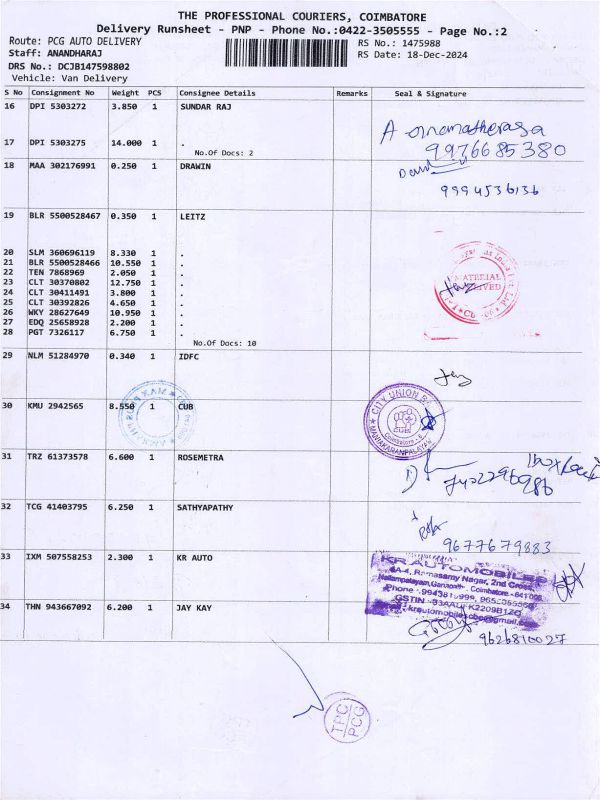 THE PROFESSIONAL COURIERS, COIMBATORE
Delivery Runsheet - PNP - Phone No.:0422-3505555 - Page No.:2
Route: PCG AUTO DELIVERY RS No.: 1475988
Staff: ANANDHARAJ RS Date: 18-Dec-2024
DRS No.: DCJB147598802
Vehicle: Van Delivery
S No Consignment No Weight PCS Consignee Details Remarks Seal & Signature
16 DPI 5303272 3.850 1 SUNDAR RAJ
17 DPI 5303275 14.000 1 .
No.Of Docs: 2
9976685380
18 MAA 302176991 0.250 1 DRAWIN
9994536136
19 BLR 5500528467 0.350 1 LEITZ
20 SLM 360696119 8.330 1 .
21 BLR 5500528466 10.550 1 .
22 TEN 7868969 2.050 1 .
23 CLT 30370802 12.750 1 .
24 CLT 30411491 3.800 1 .
25 CLT 30392826 4.650 1 .
26 WKY 28627649 10.950 1 .
27 EDQ 25658928 2.200 1 .
28 PGT 7326117 6.750 1 .
No.Of Docs: 10
MATERIAL
29 NLM 51284970 0.340 1 IDFC
30 KMU 2942565 8.550 1 CUB
CITY UNION
Coimbatore
31 TRZ 61373578 6.600 1 ROSEMETRA
32 TCG 41403795 6.250 1 SATHYAPATHY
9677679883
33 IXM 507558253 2.300 1 KR AUTO
KR AUTOMOBILES
6A-4, Ramasamy Nagar, 2nd Cross,
Nallampalayan, Ganapathy, Coimbatore - 641006
34 THN 943667092 6.200 1 JAY KAY
9626810027
TPC
PCG